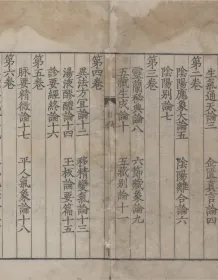 生氣通天論三　金匱真言論四
第二卷
陰陽應象大論五　陰陽離合論六
陰陽別論七
第三卷
靈蘭秘典論八　六節藏象論九
五藏生成論十　五藏別論十一
第四卷
異法方宜論十二　移精變氣論十三
湯液醪醴論十四　玉板論要篇十五
診要經終論十六
第五卷
脉要精微論十七　平人氣象論十八
第六卷